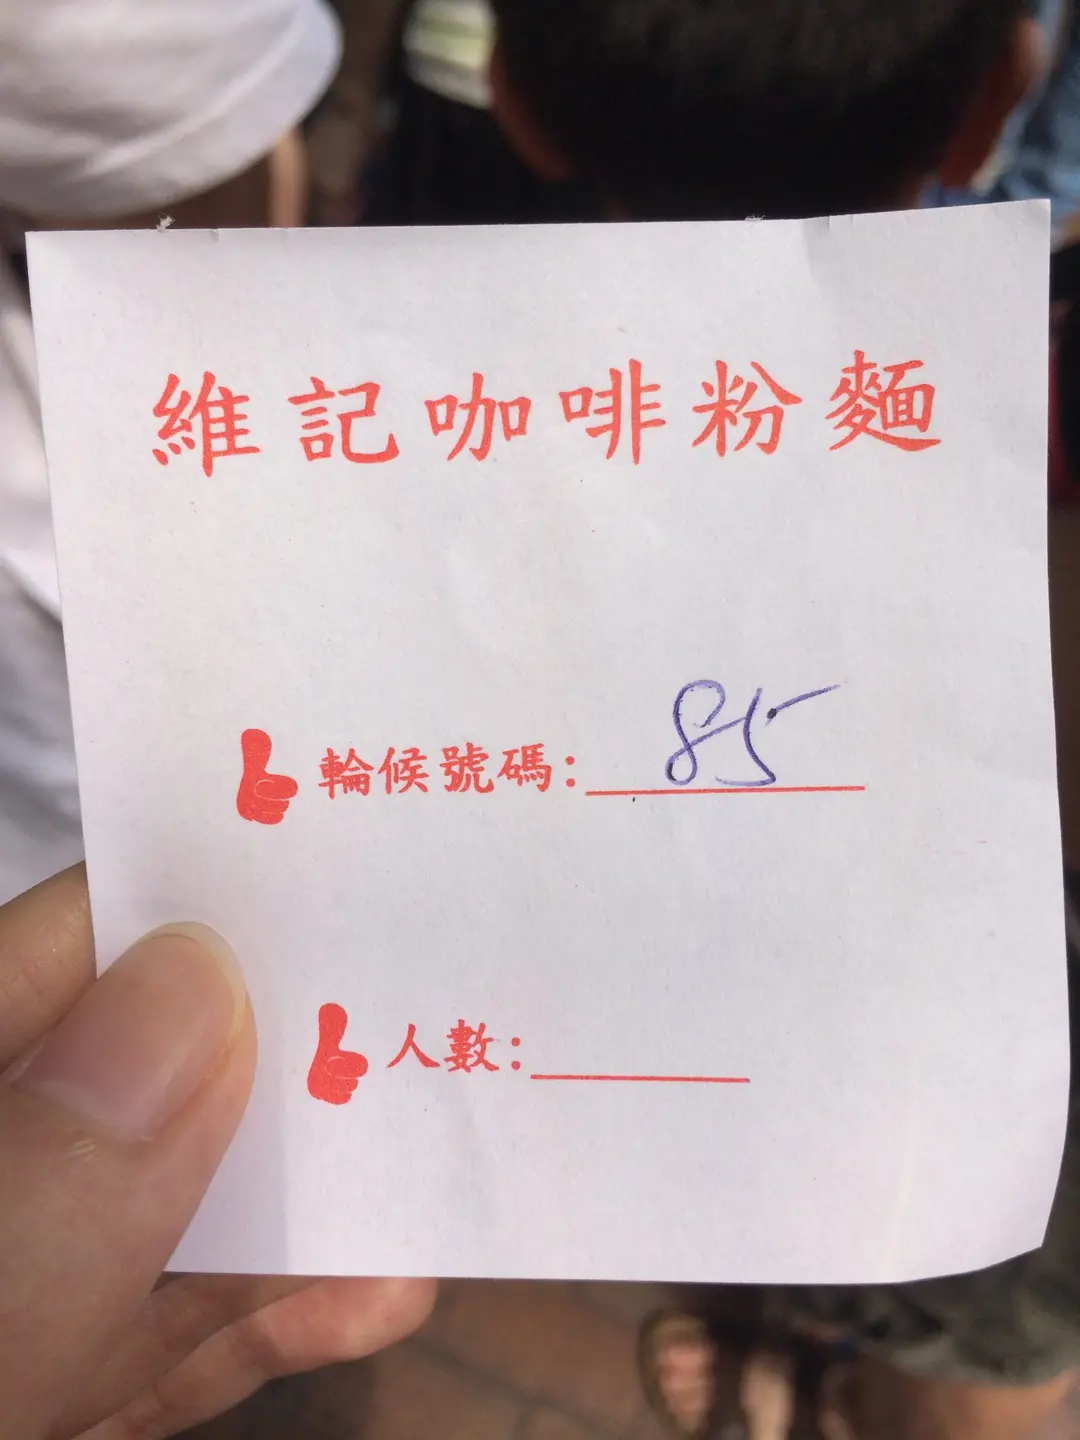 維記咖啡粉麵
輪候號碼: 85
人數: